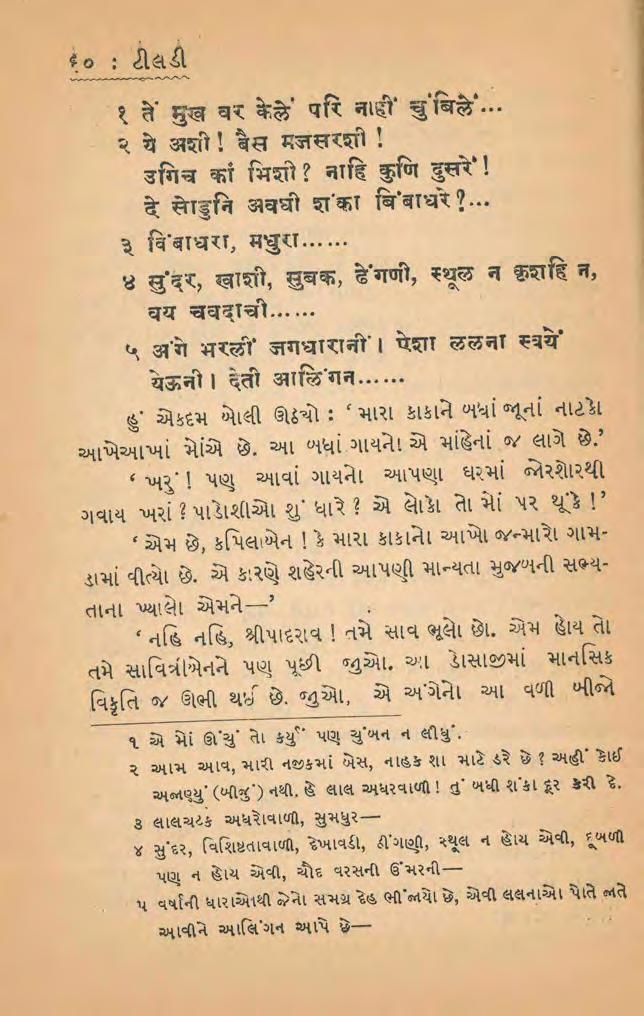 ૬૦ : ટીલડી
१ तें मुख वर केलें परि नाहीं चुंबिलें...
२ ये अशी! बैस मजसरशी!
उगिच कां भिशी? नाहि कुणि दुसरें!
दे सोडुनि अवघी शंका बिंबाधरे?...
३ विंबाधरा, मधुरा......
४ सुंदर, खाशी, सुबक, ढेंगणी, स्थूल न कृशहि न,
वय चवदाची......
५ अंगे भरलीं जगधारानीं। पेशा ललना स्त्रयें
येऊनी। देती आलिंगन......
હું એકદમ બોલી ઊઠ્યો : ‘મારા કાકાને બધાં જૂનાં નાટકો
આખેઆખાં મોંએ છે. આ બધાં ગાયનો એ માંહેનાં જ લાગે છે.’
‘ખરું! પણ આવાં ગાયનો આપણા ઘરમાં જોરશોરથી
ગવાય ખરાં? પાડોશીઓ શું ધારે? એ લોકો તો મોં પર થૂંકે!’
‘એમ છે, કપિલાબેન! કે મારા કાકાનો આખો જન્મારો ગામ-
ડામાં વીત્યો છે. એ કારણે શહેરની આપણી માન્યતા મુજબની સભ્ય-
તાના ખ્યાલો એમને—’
‘નહિ નહિ, શ્રીપાદરાવ! તમે સાવ ભૂલો છો. એમ હોય તો
તમે સાવિત્રીબેનને પણ પૂછી જુઓ. આ ડોસાજીમાં માનસિક
વિકૃતિ જ ઊભી થઈ છે. જુઓ, એ અંગેનો આ વળી બીજો
૧ એ મોં ઊંચું તો કર્યું પણ ચુંબન ન લીધું.
૨ આમ આવ, મારી નજીકમાં બેસ, નાહક શા માટે ડરે છે? અહીં કોઈ
અજાણ્યું (બીજું) નથી. હે લાલ અધરવાળી! તું બધી શંકા દૂર કરી દે.
૩ લાલચટક અધરોવાળી, સુમધુર—
૪ સુંદર, વિશિષ્ટતાવાળી, દેખાવડી, ઠીંગણી, સ્થૂલ ન હોય એવી, દૂબળી
પણ ન હોય એવી, ચૌદ વરસની ઉંમરની—
૫ વર્ષાની ધારાઓથી જેનો સમગ્ર દેહ ભીંજાયો છે, એવી લલનાઓ પોતે જાતે
આવીને આલિંગન આપે છે—